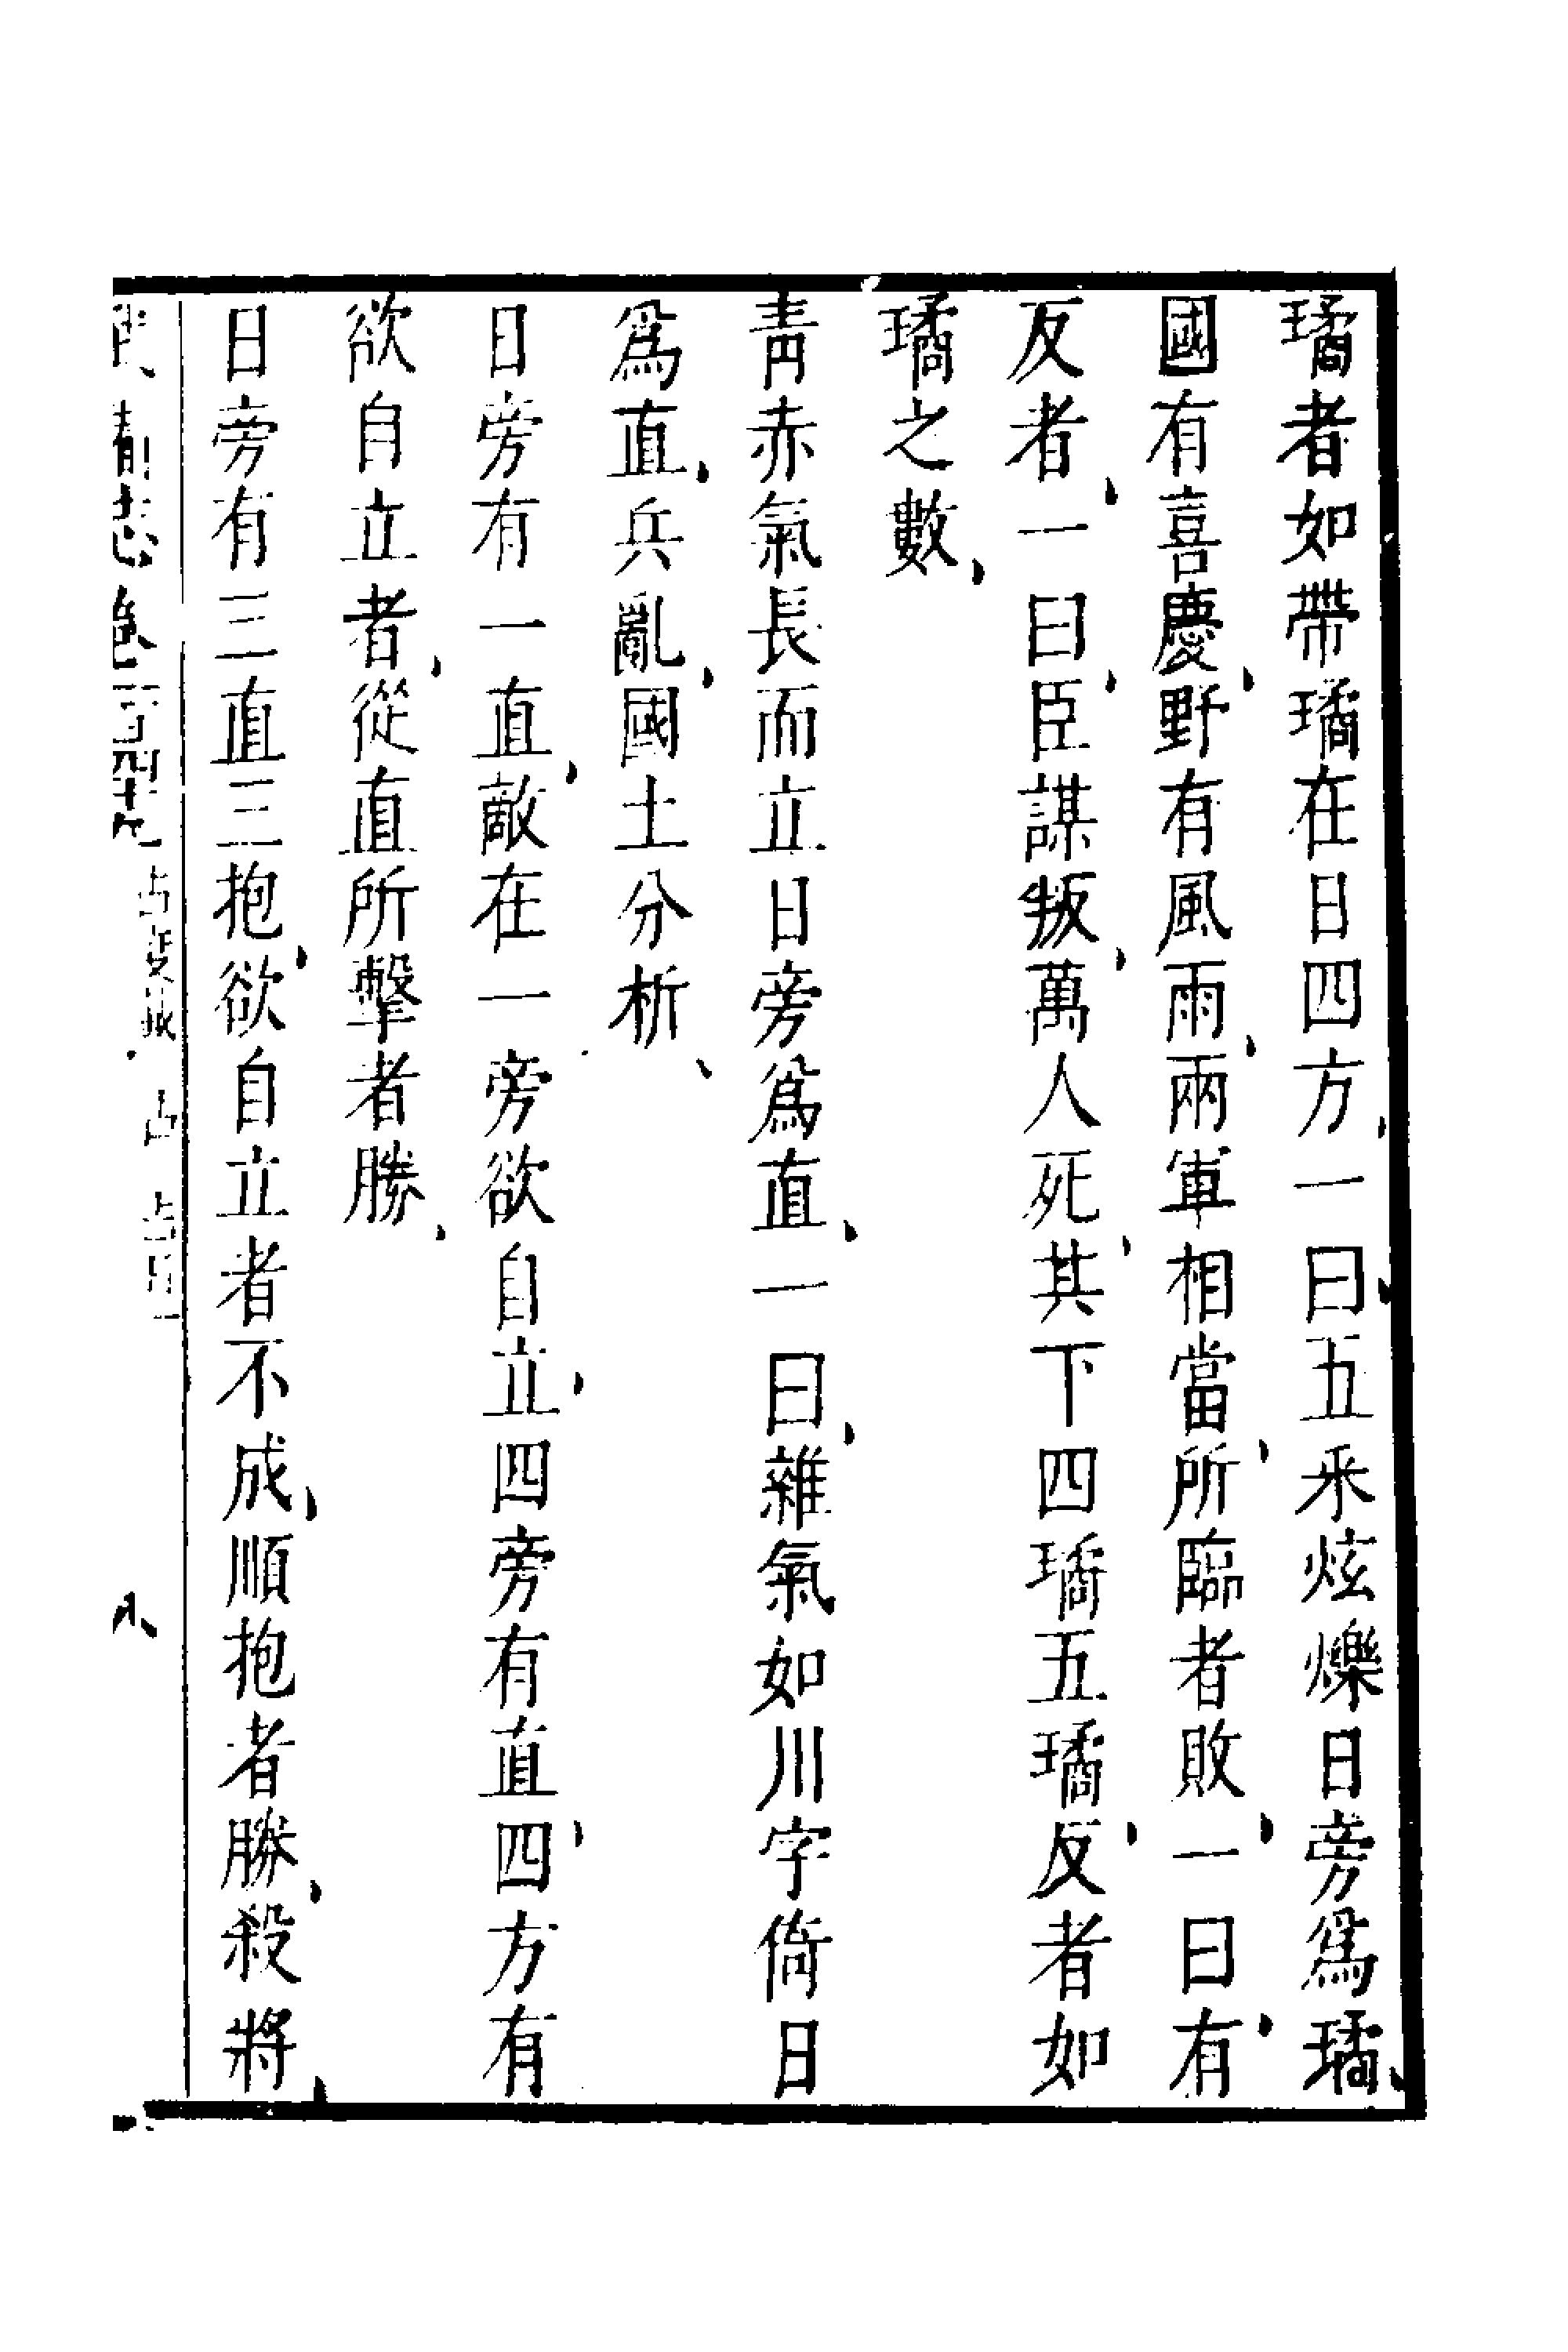 璚者如帶璚在日四方、一曰、五釆炫爍日旁爲璚、
國有喜慶、野有風雨、兩軍相當、所臨者敗、一曰、有
反者、一曰、臣謀叛、萬人死、其下四璚五璚反、者如
璚之數、
青赤氣長而立日旁爲直、一曰、雜氣如川字倚日
爲直、兵亂、國土分析、
日旁有一直、敵在一旁欲自立、四旁有直、四方有
欲自立者、從直所擊者勝、
日旁有三直三抱、欲自立者不成、順抱者勝、殺將、
武備志卷一百四十九 占度載 占 占日一 八